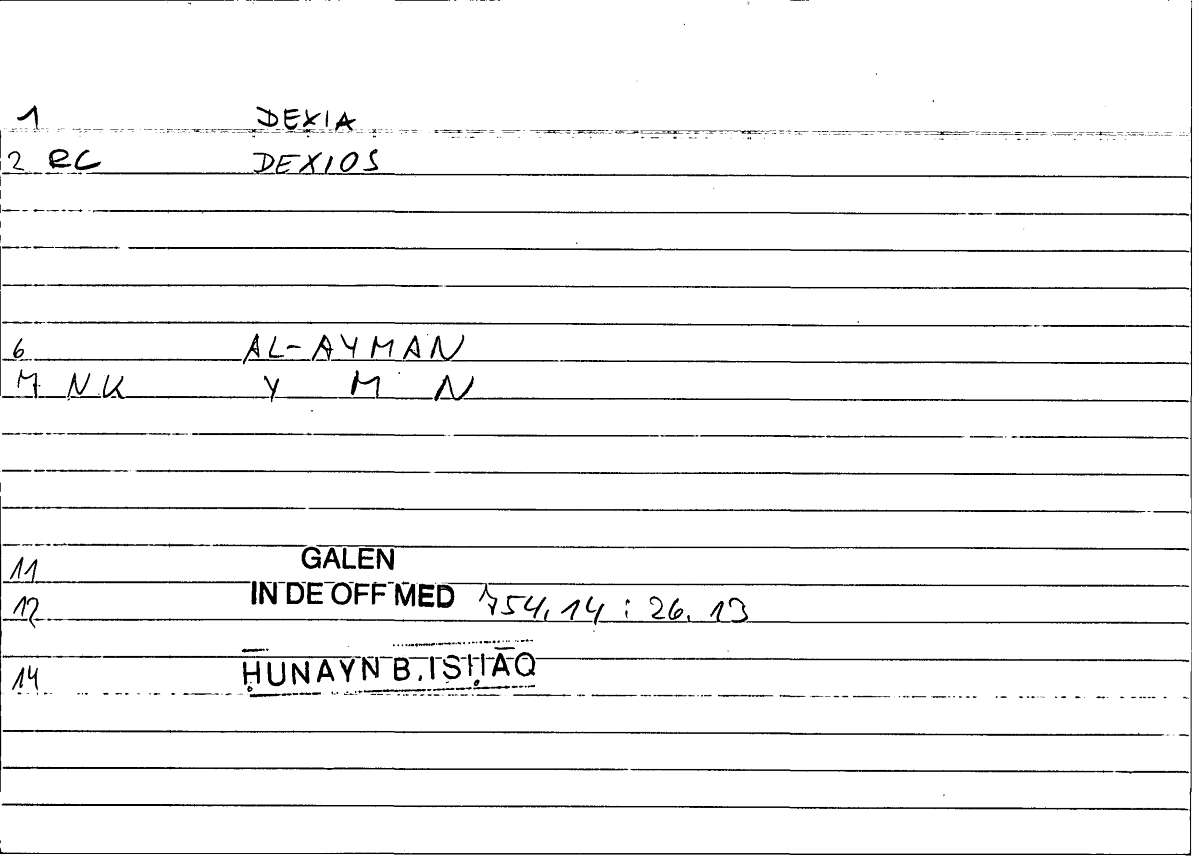 1 DEXIA
2 RC DEXIOS
6 AL-AYMAN
M NK Y M N
11 GALEN
12 IN DE OFF MED 754,14 : 26.13
14 ḤUNAYN B. ISḤĀQ